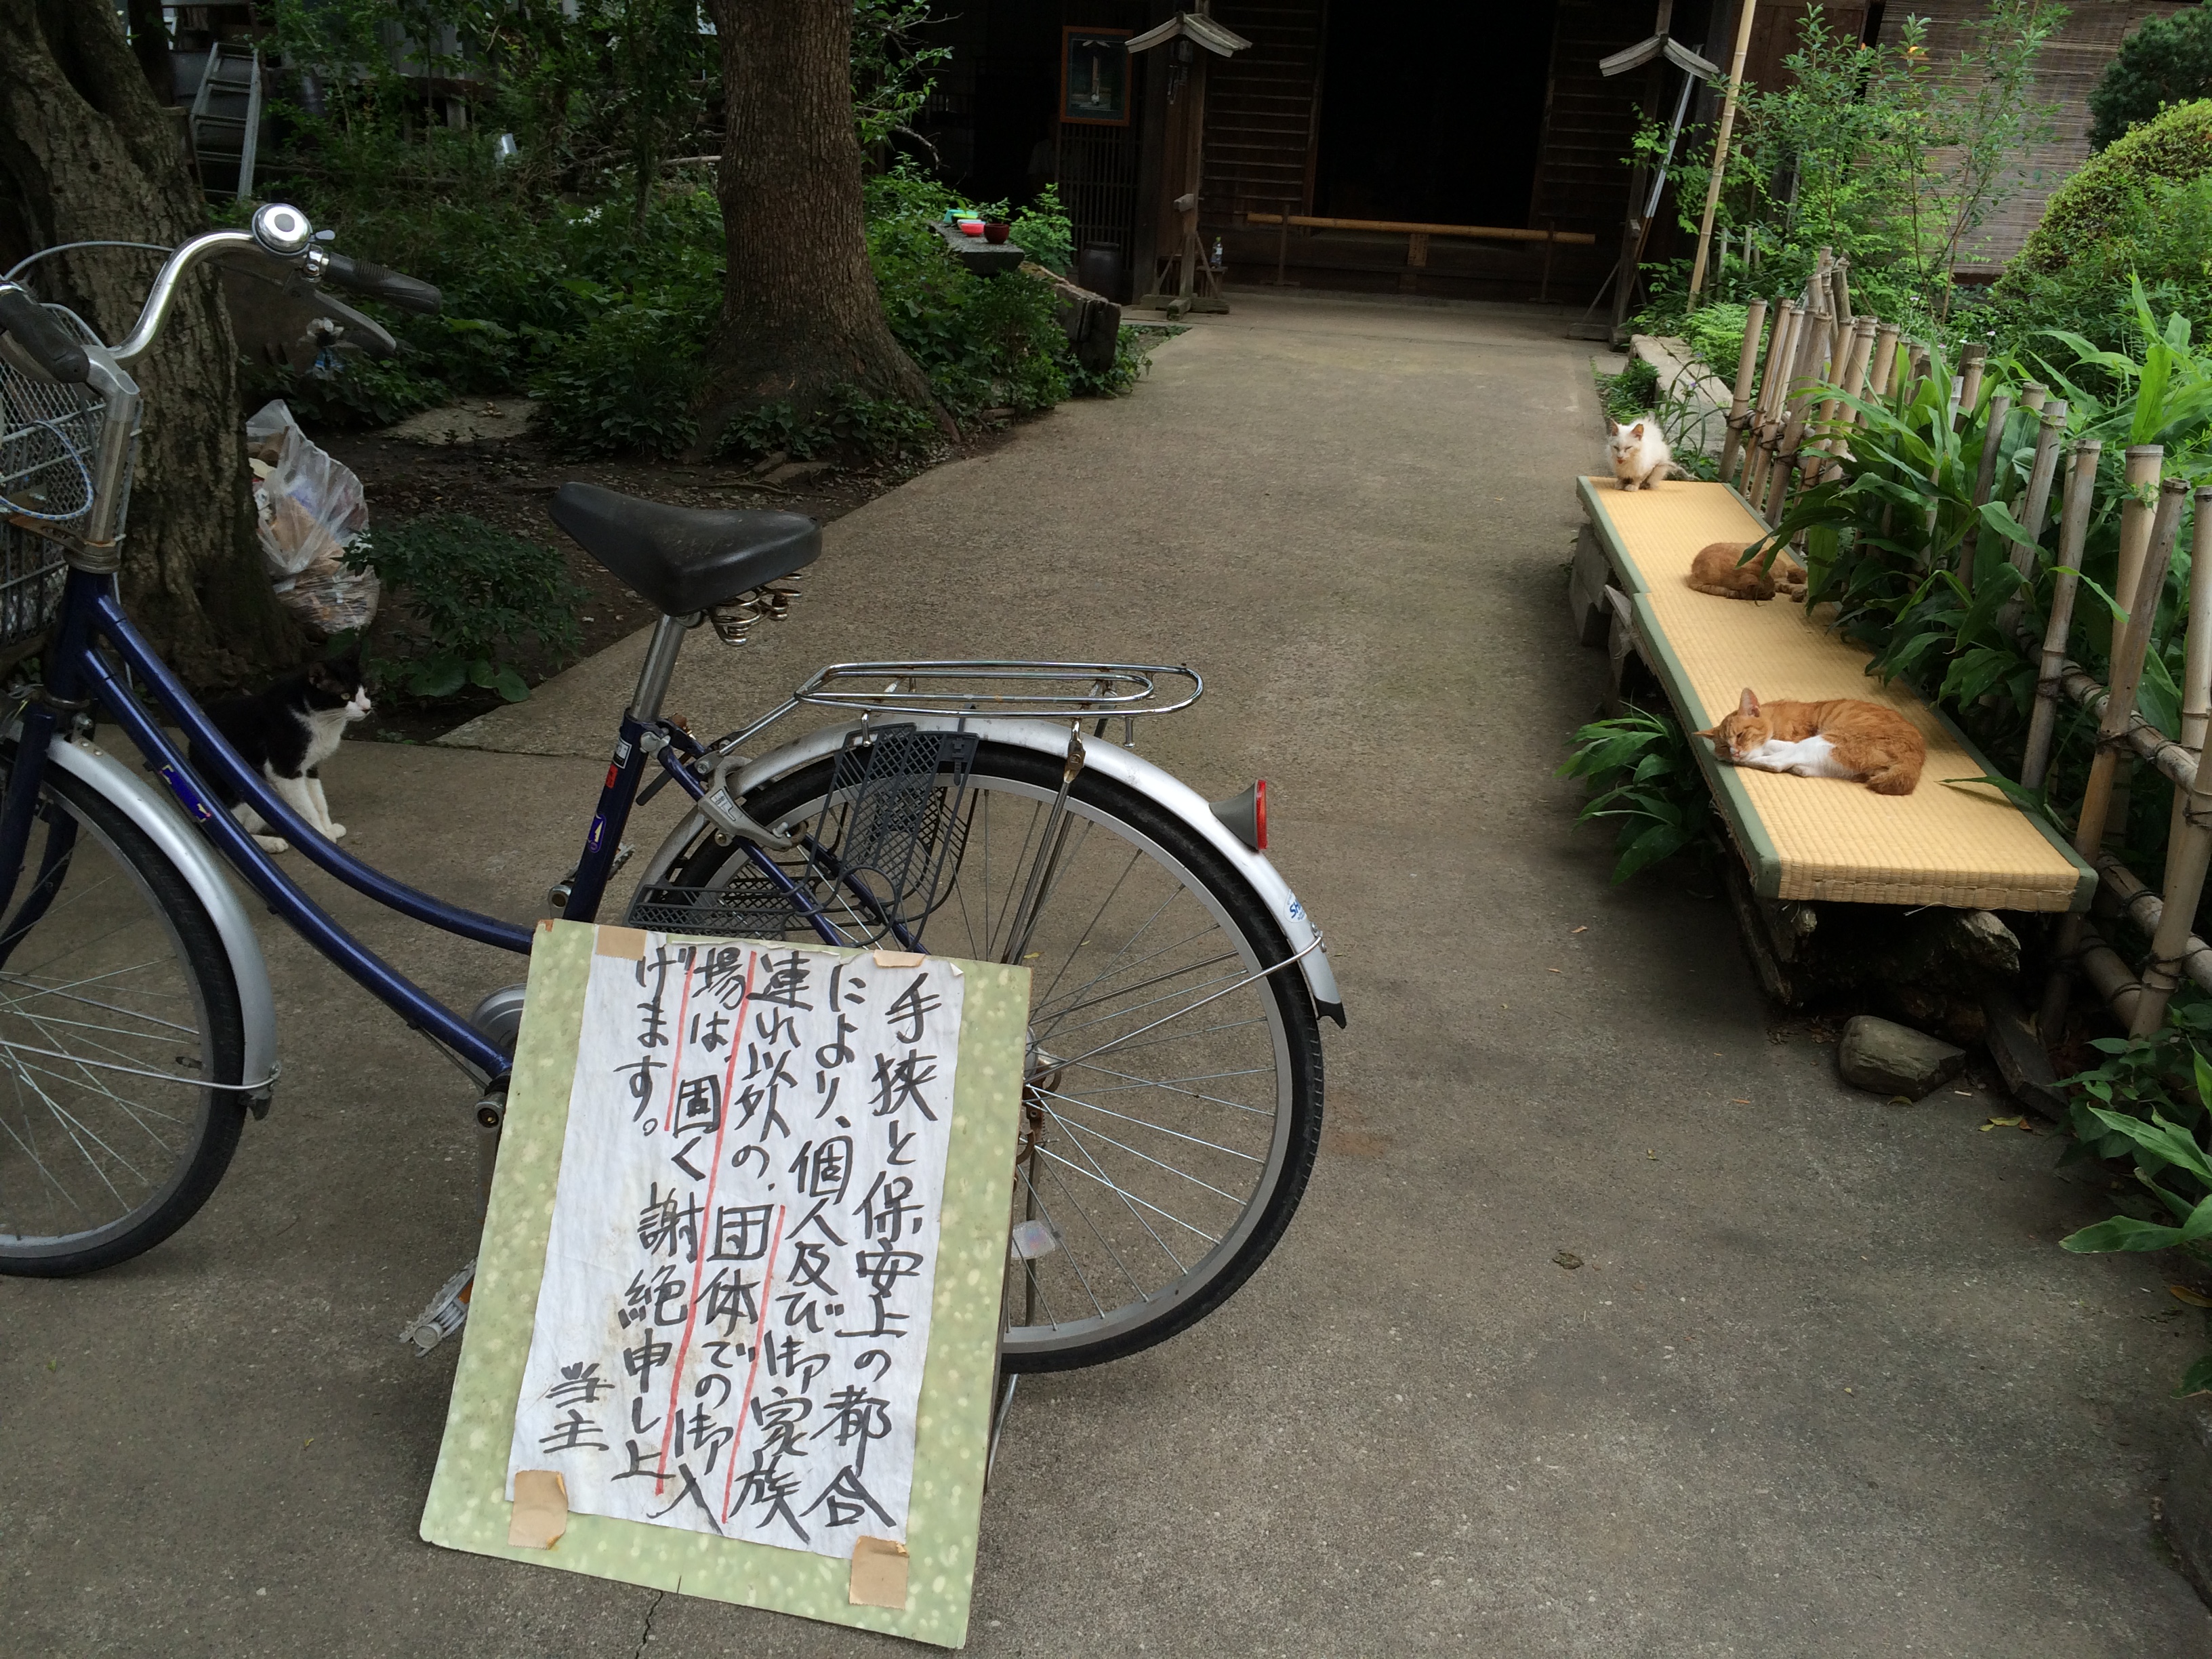 手狭と保安上の都合
により、個人及び御家族
連れ以外の、団体での御入
場は、固く謝絶申し上
げます。
当主